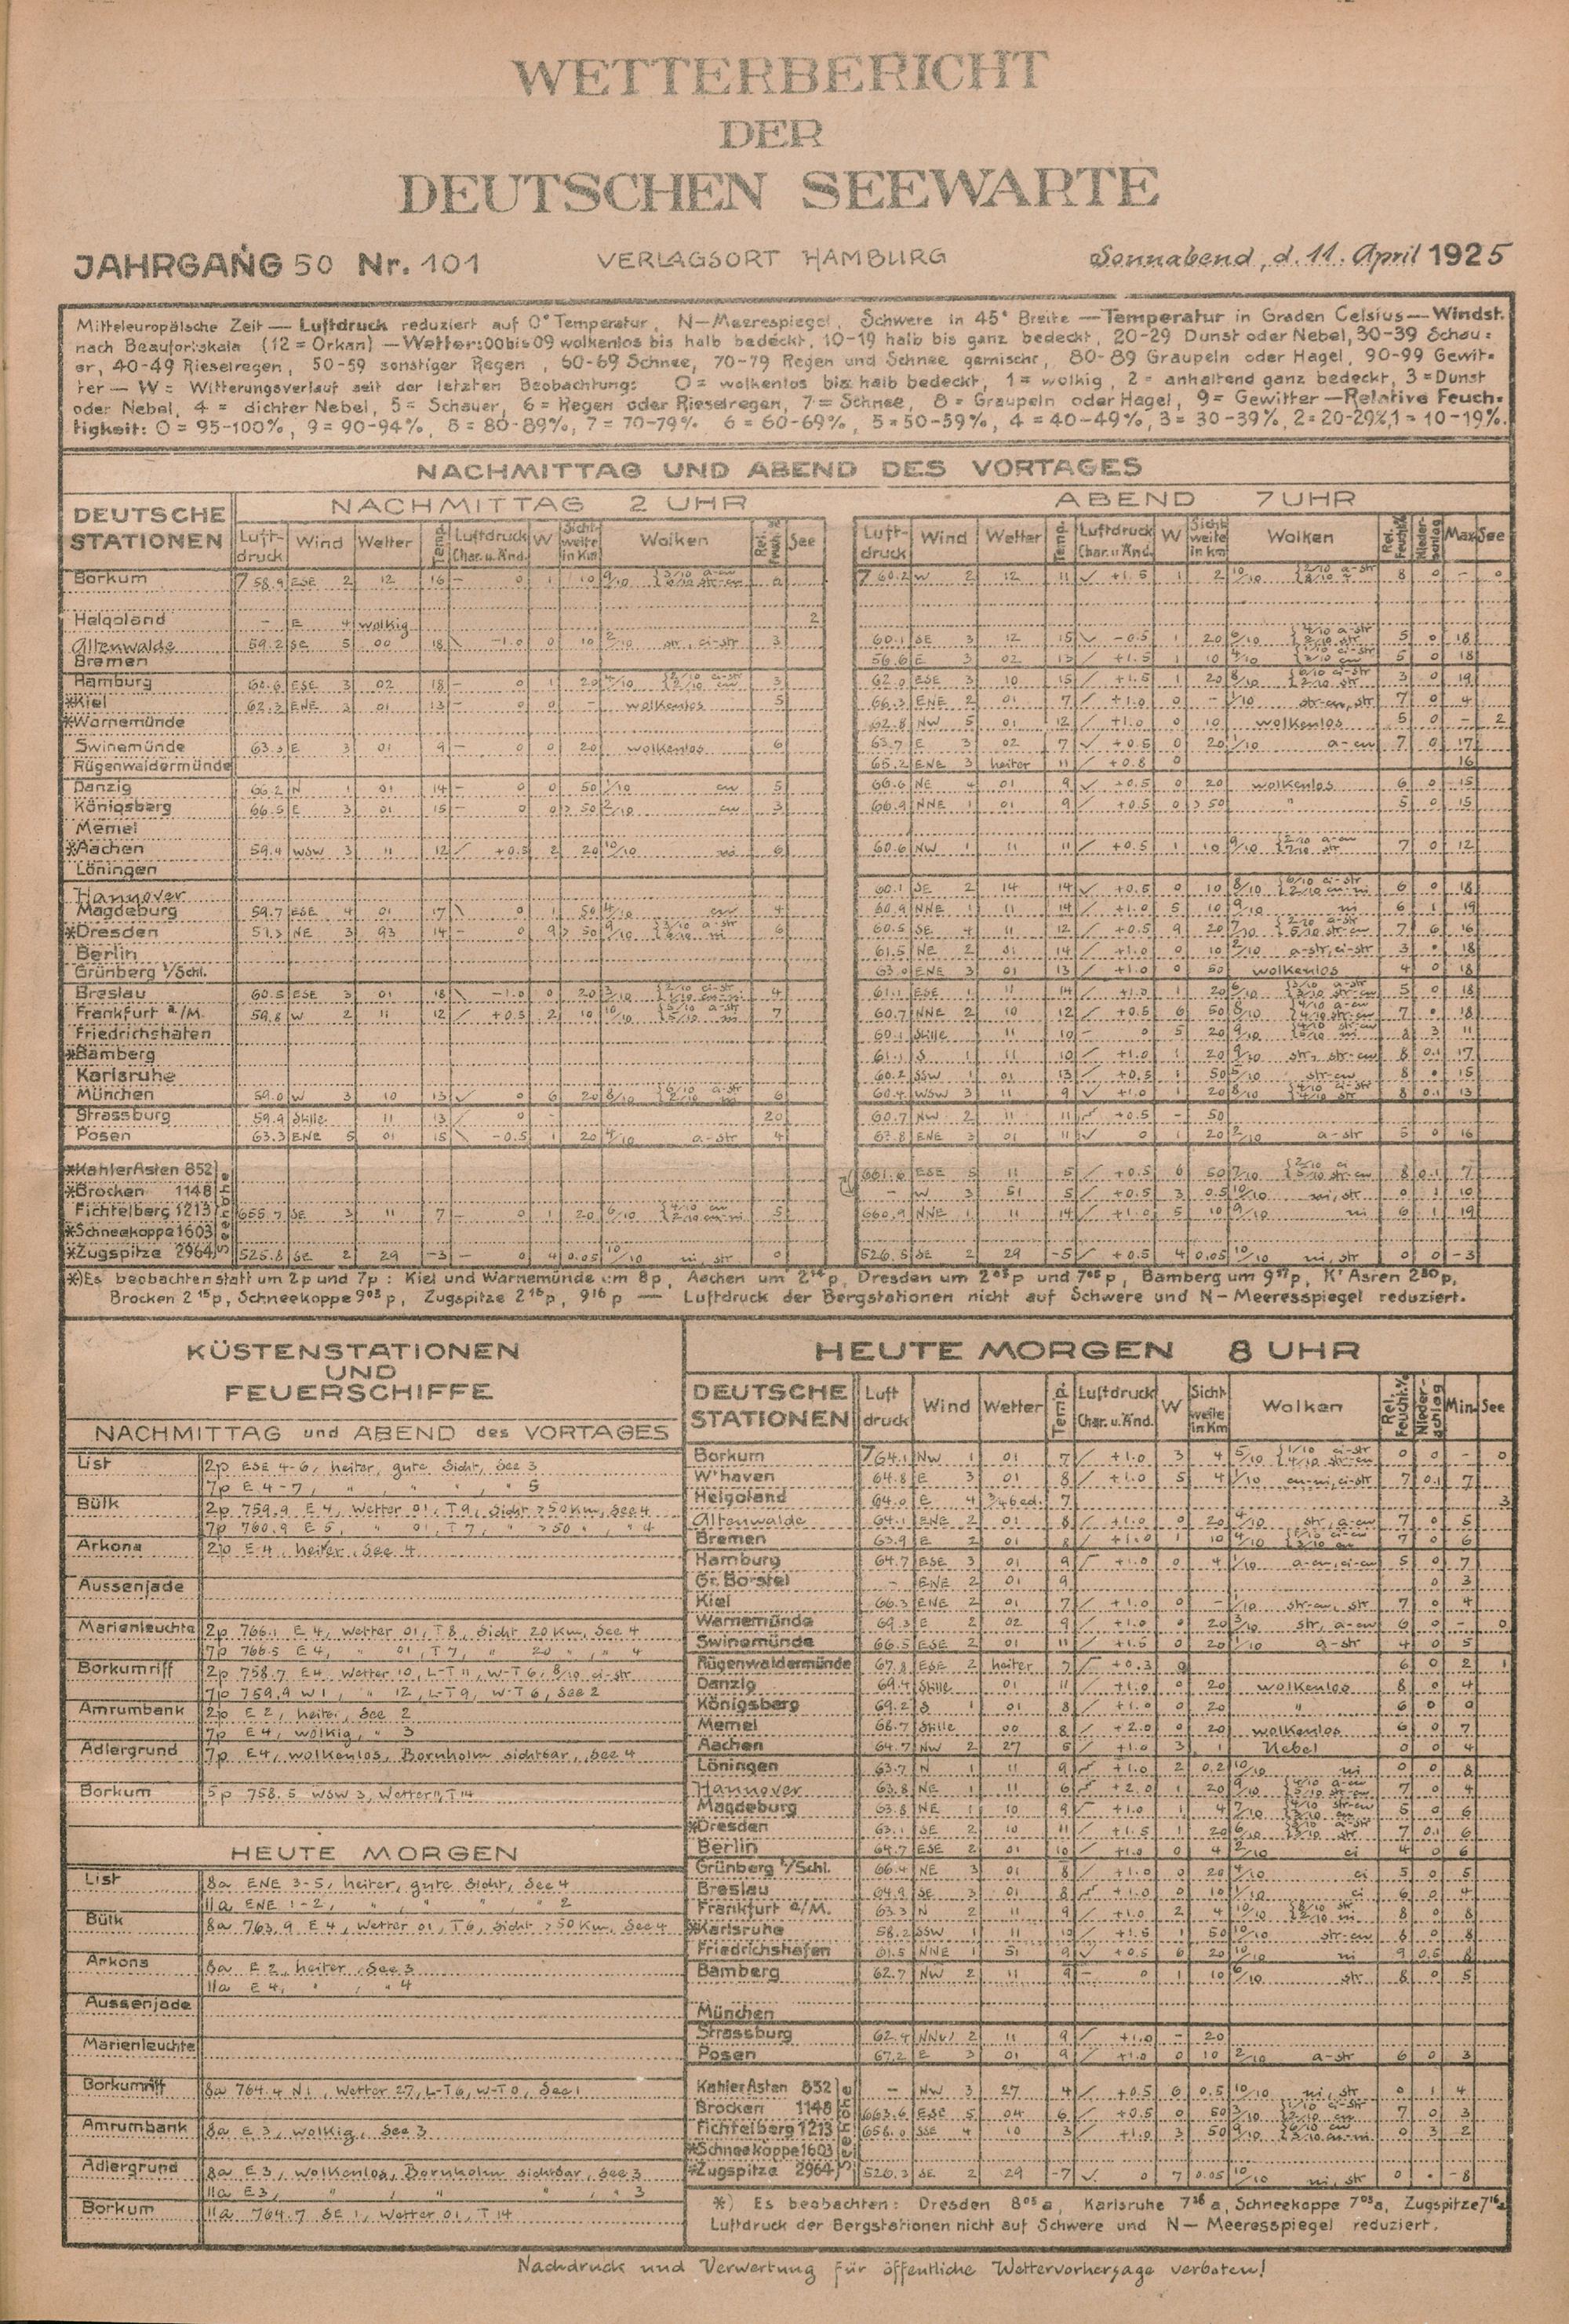 WETTERBERICHT
DER
DEUTSCHEN SEEWARTE
JAHRGANG 50 Nr. 101 VERLAGSORT HAMBURG Sonnabend, d. 11. April 1925
Mitteleuropäische Zeit — Luftdruck reduziert auf 0° Temperatur, N—Meerespiegel, Schwere in 45° Breite — Temperatur in Graden Celsius — Windst.
nach Beaufortskala (12 = Orkan) — Wetter: 00 bis 09 wolkenlos bis halb bedeckt, 10-19 halb bis ganz bedeckt, 20-29 Dunst oder Nebel, 30-39 Schau=
er, 40-49 Rieselregen, 50-59 sonstiger Regen, 60-69 Schnee, 70-79 Regen und Schnee gemischt, 80-89 Graupeln oder Hagel, 90-99 Gewit=
ter — W = Witterungsverlauf seit der letzten Beobachtung: 0 = wolkenlos bis halb bedeckt, 1 = wolkig, 2 = anhaltend ganz bedeckt, 3 = Dunst
oder Nebel, 4 = dichter Nebel, 5 = Schauer, 6 = Regen oder Rieselregen, 7 = Schnee, 8 = Graupeln oder Hagel, 9 = Gewitter — Relative Feuch=
tigkeit: 0 = 95-100%, 9 = 90-94%, 8 = 80-89%, 7 = 70-79% 6 = 60-69%, 5 = 50-59%, 4 = 40-49%, 3 = 30-39%, 2 = 20-29%, 1 = 10-19%.
NACHMITTAG UND ABEND DES VORTAGES
DEUTSCHE STATIONEN
NACHMITTAG 2 UHR
Luft-druck Wind Wetter Temp. Luftdruck Char. u. Änd. W Sicht-weite in Km Wolken Rel. Feuch. See
ABEND 7 UHR
Luft-druck Wind Wetter Temp. Luftdruck Char. u. Änd. W Sicht weite in km Wolken Rel. Feucht.% Nieder-schlag Max See
Borkum 758.9 ESE 2 12 16 — 0 1 10 9/10 760.2 W 2 12 11 +1.5 1 2 10/10 8 0 — 0
Helgoland — E 4 wolkig 2
Altenwalde 59.2 SE 5 00 18 -1.0 0 10 2/10 str, ci-str 3 60.1 SE 3 12 15 -0.5 1 20 5 0 18
Bremen 56.6 E 3 02 +1.5 1 10 5 0 18
Hamburg 60.6 ESE 3 02 18 — 0 1 20 4/10 3 62.0 ESE 3 10 15 +1.5 1 20 8/10 3 0 19
*Kiel 62.3 ENE 3 01 13 — 0 0 — wolkenlos 5 66.3 ENE 2 01 7 +1.0 0 — 1/10 str-cu, str 7 0 4
*Warnemünde 62.8 NW 5 01 12 +1.0 0 10 wolkenlos 5 0 — 2
Swinemünde 63.3 E 3 01 9 — 0 0 20 wolkenlos 6 63.7 E 3 02 7 +0.5 0 20 1/10 a-cu 7 0 17
Rügenwaldermünde 65.2 ENE 3 heiter 11 +0.8 0 16
Danzig 66.2 N 1 01 14 — 0 0 50 1/10 cu 5 66.6 NE 4 01 9 +0.5 0 20 wolkenlos 6 0 15
Königsberg 66.5 E 3 01 15 — 0 0 > 50 2/10 cu 3 66.9 NNE 1 01 9 +0.5 0 > 50 " 5 0 15
Memel
*Aachen 59.4 WSW 3 11 12 +0.5 2 20 10/10 ni 6 60.6 NW 1 11 11 +0.5 1 10 9/10 7 0 12
Löningen
Hannover 60.1 SE 2 14 14 +0.5 0 10 8/10 6 0 18
Magdeburg 59.7 ESE 4 01 17 0 1 50 4/10 cu 4 60.9 NNE 1 11 14 +1.0 5 10 9/10 ni 6 1 19
*Dresden 51.3 NE 3 93 14 — 0 9 > 50 9/10 6 60.5 SE 4 11 12 +0.5 9 20 7/10 7 6 16
Berlin 61.5 NE 2 01 14 +1.0 0 10 2/10 a-str, ci-str 3 • 18
Grünberg i/Schl. 63.0 ENE 3 01 13 +1.0 0 50 wolkenlos 4 0 18
Breslau 60.5 ESE 3 01 18 -1.0 0 20 3/10 4 61.1 ESE 1 11 14 +1.0 1 20 6/10 5 0 18
Frankfurt a./M. 59.8 W 2 11 12 +0.5 2 10 10/10 7 60.7 NNE 2 10 12 +0.5 6 50 8/10 7 • 18
Friedrichshafen 60.1 Stille 11 10 — 0 5 20 9/10 8 3 11
*Bamberg 61.1 S 1 11 10 +1.0 1 20 9/10 str, str-cu 8 0.1 17
Karlsruhe 60.2 SSW 1 01 13 +0.5 1 50 5/10 str-cu 8 • 15
München 59.0 W 3 10 13 0 6 20 8/10 6 60.4 WSW 3 11 9 +1.0 1 20 8/10 8 0.1 13
Strassburg 59.9 Stille 11 13 0 - 20 60.7 NW 2 11 11 +0.5 — 50
Posen 63.3 ENE 5 01 15 -0.5 1 20 4/10 a-str 4 63.8 ENE 3 01 11 0 1 20 2/10 a-str 5 0 16
*Kahler Asten 852 661.6 ESE 5 11 5 +0.5 6 50 7/10 8 0.1 7
*Brocken 1148 — W 3 51 5 +0.5 3 0.5 10/10 ni, str 0 1 10
Fichtelberg 1213 655.7 SE 3 11 7 — 0 1 20 6/10 5 660.9 NNE 1 11 14 +1.0 5 10 9/10 ni 6 1 19
*Schneekoppe 1603
*Zugspitze 2964 525.8 SE 2 29 -3 — 0 4 0.05 10/10 ni, str 0 526.5 SE 2 29 -5 +0.5 4 0.05 10/10 ni, str 0 0 -3
*) Es beobachten statt um 2p und 7p: Kiel und Warnemünde um 8p, Aachen um 2¹⁴p, Dresden um 2⁰⁵p und 7⁰⁵p, Bamberg um 9³⁷p, K' Asten 2³⁰p,
Brocken 2¹⁵p, Schneekoppe 9⁰³p, Zugspitze 2¹⁶p, 9¹⁶p — Luftdruck der Bergstationen nicht auf Schwere und N—Meeresspiegel reduziert.
KÜSTENSTATIONEN
UND
FEUERSCHIFFE
NACHMITTAG und ABEND des VORTAGES
List 2p ESE 4-6, heiter, gute Sicht, See 3
7p E 4-7, " , " " , " 5
Bülk 2p 759.9 E 4, Wetter 01, T 9, Sicht >50 Km, See 4
7p 760.9 E 5, " 01, T 7, " >50 " , " 4
Arkona 2p E 4, heiter, See 4
Aussenjade
Marienleuchte 2p 766.1 E 4, Wetter 01, T 8, Sicht 20 Km, See 4
7p 766.5 E 4, " 01, T 7, " 20 " , " 4
Borkumriff 2p 758.7 E 4 Wetter 10, L-T 11, W-T 6, 8/10 ci-str
7p 759.9 W 1, " 12, L-T 9, W-T 6, See 2
Amrumbank 2p E 2, heiter, See 2
7p E 4, wolkig, " 3
Adlergrund 7p E 4, wolkenlos, Bornholm sichtbar, See 4
Borkum 5p 758.5 WSW 3, Wetter 11, T 14
HEUTE MORGEN
List 8a ENE 3-5, heiter, gute Sicht, See 4
11a ENE 1-2, " , " " , " 2
Bülk 8a 763.9 E 4, Wetter 01, T 6, Sicht >50 Km, See 4
Arkona 8a E 2, heiter, See 3
11a E 4, " , " 4
Aussenjade
Marienleuchte
Borkumriff 8a 764.4 N 1, Wetter 27, L-T 6, W-T 0, See 1
Amrumbank 8a E 3, wolkig, See 3
Adlergrund 8a E 3, wolkenlos, Bornholm sichtbar, See 3
11a E 3, " , " " , " 3
Borkum 11a 764.7 SE 1, Wetter 01, T 14
HEUTE MORGEN 8 UHR
DEUTSCHE STATIONEN Luft druck Wind Wetter Temp. Luftdruck Char. u. Änd. W Sicht weite in Km Wolken Rel. Feucht.% Nieder-schlag Min. See
Borkum 764.1 NW 1 01 7 +1.0 3 4 5/10 0 0 — 0
W'haven 64.8 E 3 01 8 +1.0 5 4 1/10 cu-ni, ci-str 7 0.1 7
Helgoland 64.0 E 4 3/4 bed. 7 3
Altenwalde 64.1 ENE 2 01 8 +1.0 0 20 4/10 str, a-cu 7 0 5
Bremen 63.9 E 2 01 8 +1.0 1 10 4/10 7 0 6
Hamburg 64.7 ESE 3 01 9 +1.0 0 4 1/10 a-cu, ci-cu 5 0 7
Gr. Borstel — ENE 2 01 9 0 3
Kiel 66.3 ENE 2 01 7 +1.0 0 — 1/10 str-cu, str 7 0 4
Warnemünde 69.3 E 2 02 9 +1.0 0 20 3/10 str, a-cu 6 0 — 0
Swinemünde 66.5 ESE 2 01 11 +1.5 0 20 1/10 a-str 4 0 5
Rügenwaldermünde 67.8 ESE 2 heiter 7 +0.3 0 6 0 2 1
Danzig 69.4 Stille 01 11 +1.0 0 20 wolkenlos 8 0 4
Königsberg 69.2 S 1 01 8 +1.0 0 20 " 6 0 0
Memel 68.7 Stille 00 8 +2.0 0 20 wolkenlos 6 0 7
Aachen 64.7 NW 2 27 5 +1.0 3 1 Nebel 0 0 4
Löningen 63.7 N 1 11 9 +1.0 2 0.2 10/10 ni 0 0 8
Hannover 63.8 NE 1 11 6 +2.0 1 20 9/10 7 0 4
Magdeburg 63.8 NE 1 10 9 +1.0 1 4 7/10 5 0 6
*Dresden 63.1 SE 2 10 11 +1.5 1 20 6/10 7 0.1 6
Berlin 64.7 ESE 2 01 10 +1.0 0 4 2/10 ci 4 0 6
Grünberg i/Schl. 66.4 NE 3 01 8 +1.0 0 20 4/10 ci 5 0 5
Breslau 64.9 SE 3 01 8 +1.0 0 10 1/10 ci 6 0 4
Frankfurt a/M. 63.3 N 2 11 9 +1.0 2 4 10/10 8 0 8
*Karlsruhe 58.2 SSW 1 11 10 +1.5 1 50 10/10 str-cu 8 0 8
Friedrichshafen 61.5 NNE 1 51 9 +0.5 6 20 10/10 ni 9 0.5 8
Bamberg 62.7 NW 2 11 9 — 0 1 10 6/10 str 8 0 5
München
Strassburg 62.4 NNW 2 11 9 +1.0 — 20
Posen 67.2 E 3 01 9 +1.0 0 10 2/10 a-str 6 0 3
Kahler Asten 852 — NW 3 27 4 +0.5 6 0.5 10/10 ni, str 0 1 4
Brocken 1148 663.6 ESE 5 04 6 +0.5 0 50 3/10 7 0 3
Fichtelberg 1213 658.0 SSE 4 10 3 +1.0 3 50 9/10 0 3 2
*Schneekoppe 1603
*Zugspitze 2964 526.3 SE 2 29 -7 0 7 0.05 10/10 ni, str 0 • -8
*) Es beobachten: Dresden 8⁰⁵a, Karlsruhe 7³⁶a, Schneekoppe 7⁰³a, Zugspitze 7¹⁶a
Luftdruck der Bergstationen nicht auf Schwere und N—Meeresspiegel reduziert.
Nachdruck und Verwertung für öffentliche Wettervorhersage verboten!